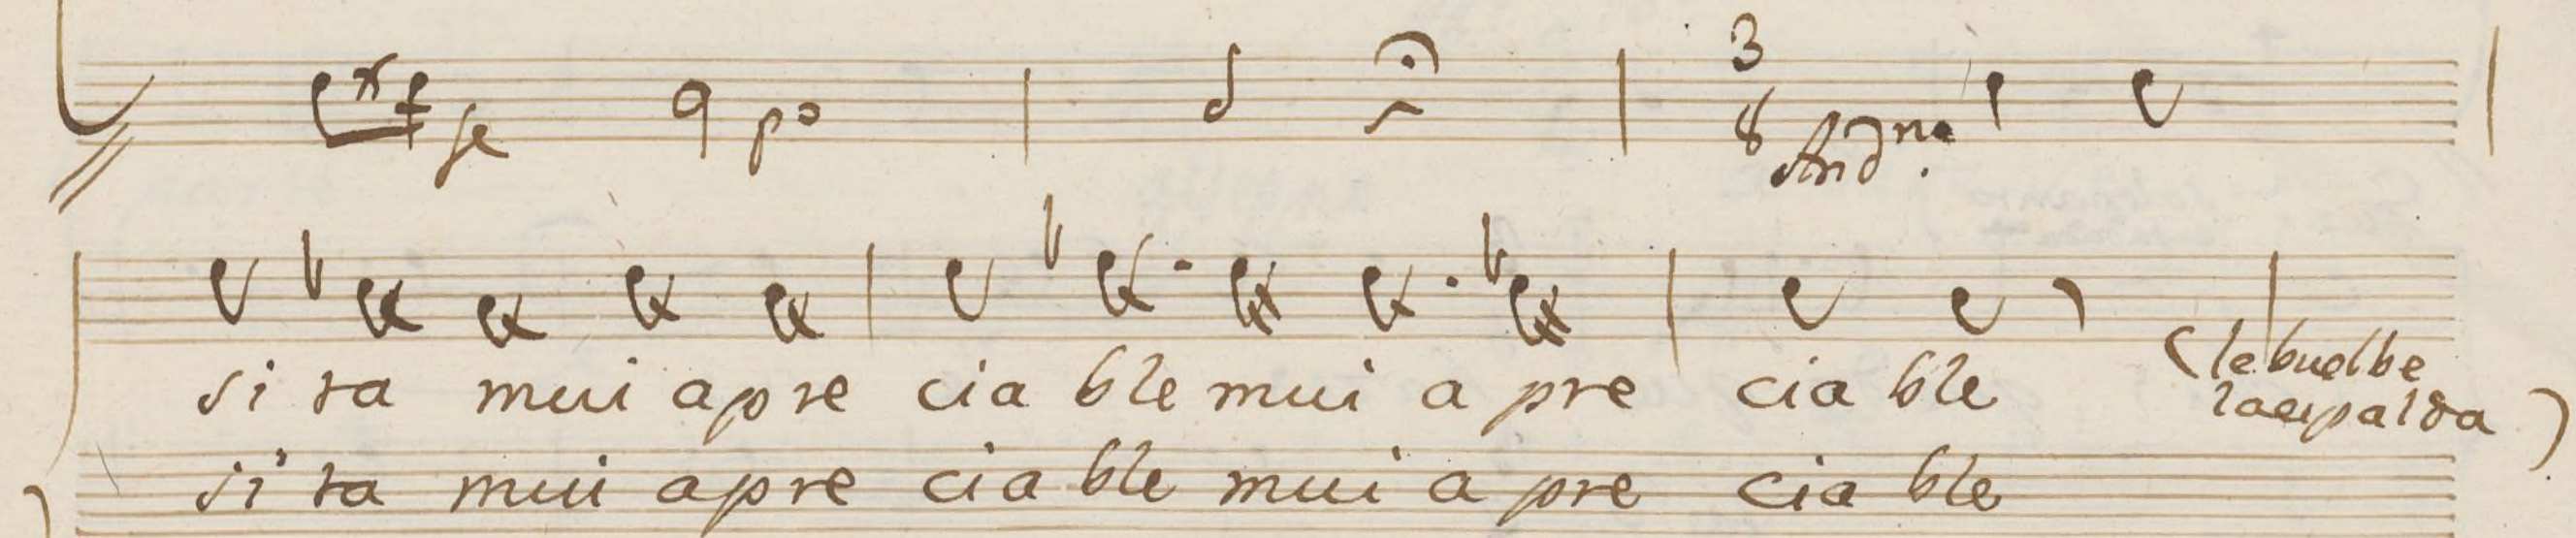 3
8
fe po Andno.
si ta mui apre cia ble mui a pre cia ble (le buelbe
la espalda)
si ta mui apre cia ble mui a pre cia ble